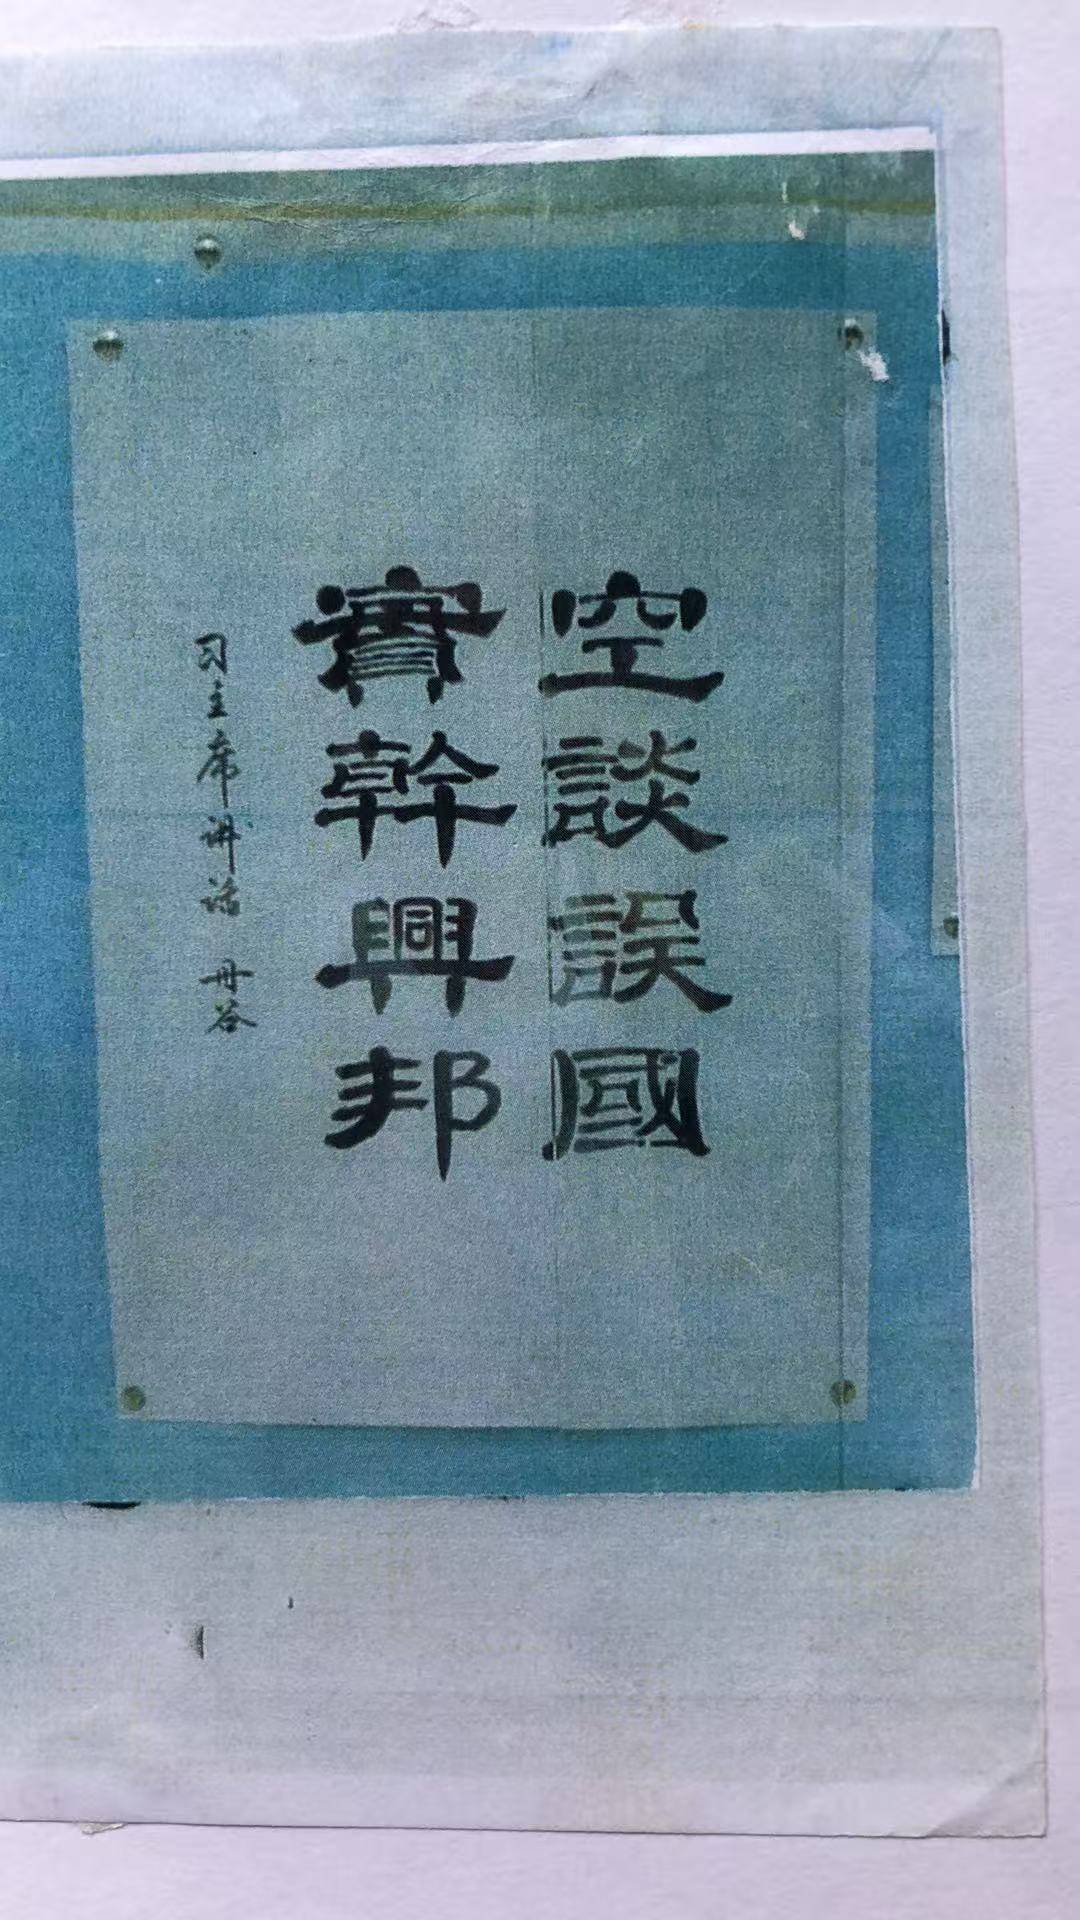 空談誤國
實幹興邦
习主席讲话 丹谷